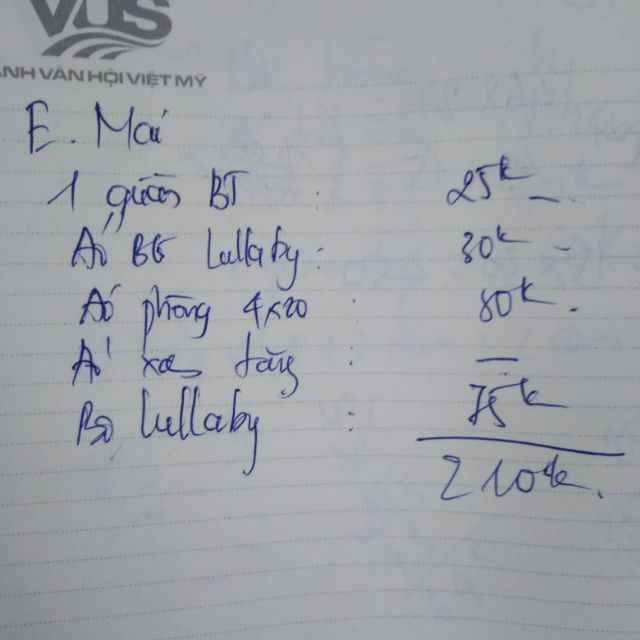 VUS
ANH VĂN HỘI VIỆT MỸ
E. Mai
1 quần BT : 25k
Áo BG Lullaby : 30k
Áo phông 4x20 : 80k.
Áo xanh tặng : —
Bộ lullaby : 75k
210k.